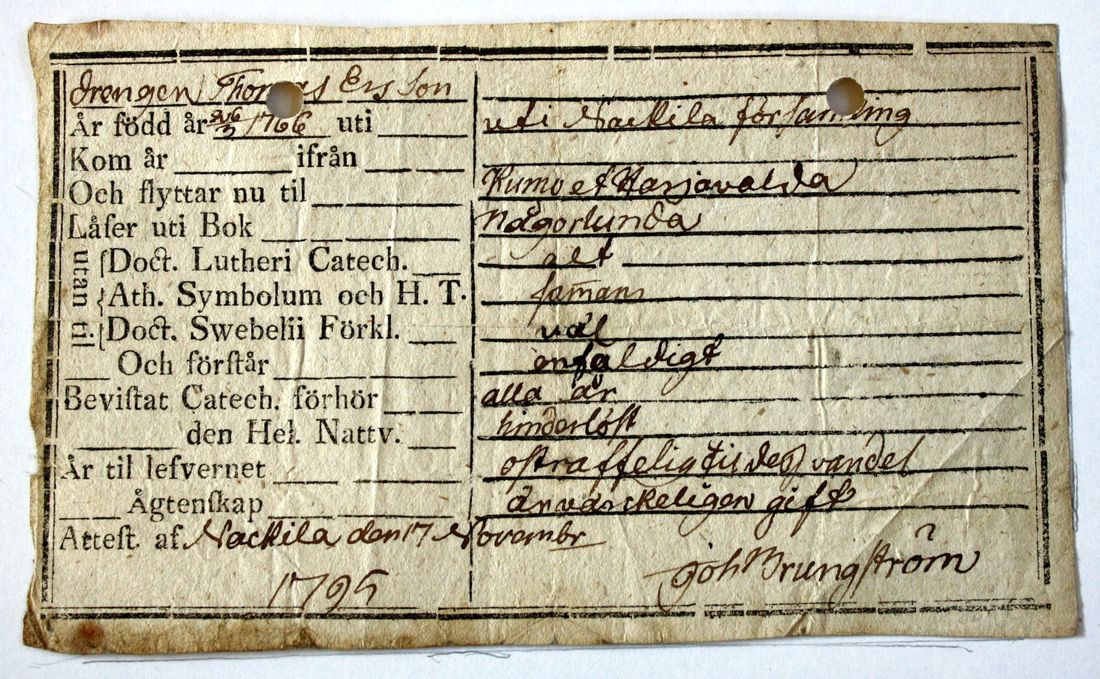 drengen Thomas Ersson
Är född år 26/2 1766 uti uti Nackila församling
Kom år ifrån
Och flyttar nu til Kumo et Harjavalda
Låſer uti Bok Någorlunda
utan til
Doct. Lutheri Catech. alt
Ath. Symbolum och H. T. samans
Doct. Swebelii Förkl. väl
Och förſtår enfaldigt
Beviſtat Catech. förhör alla år
den Hel. Nattv. hinderlöst
Är til lefvernet ostraffelig til deß vandel
Ägtenſkap är värckeligen gift
Atteſt. af Nackila den 17 Novembr
1795 Joh Brungström